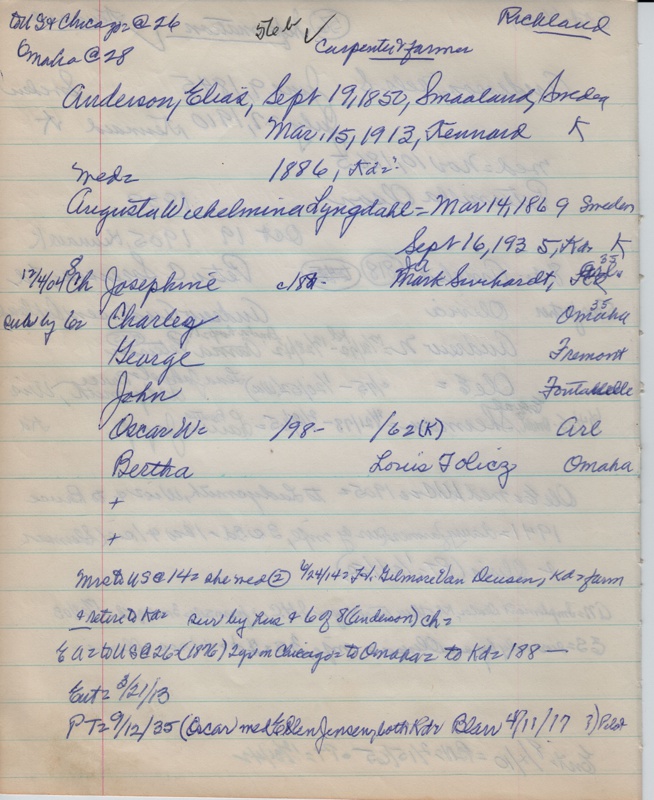 to US & Chicago @ 26 Rickland
Omaha @ 28 ✓ Carpenter & farmer
Anderson, Elias, Sept 19, 1850, Smaaland, Sweden
Mar. 15, 1913, Kennard K
med= 1886, Kd=
Augusta Wilhelmina Lyngdahl = Mar 14, 1869 Sweden
Sept 16, 1935, Kd= K
12/4/04 8 Ch Josephine Mark Swihardt,
Charley Omaha 35
George Fremont
John Fontanelle
Oscar W= 198- /62 (K) Arl
Bertha Louis Tolicz Omaha
+
+
Mrs to US @ 14= she med ② 6/24/14= Gilmore Van Deusen, Kd= farm
& retire to Kd= surv by hus & 6 of 8 (Anderson) ch=
E A= to US @ 26= (1876) 2 yr in Chicago= to Omaha= to Kd= 188—
Ent= 3/21/13
PT= 9/12/35 (Oscar med Ellen Jensen, both Kd= Blair 4/11/17 Pilot